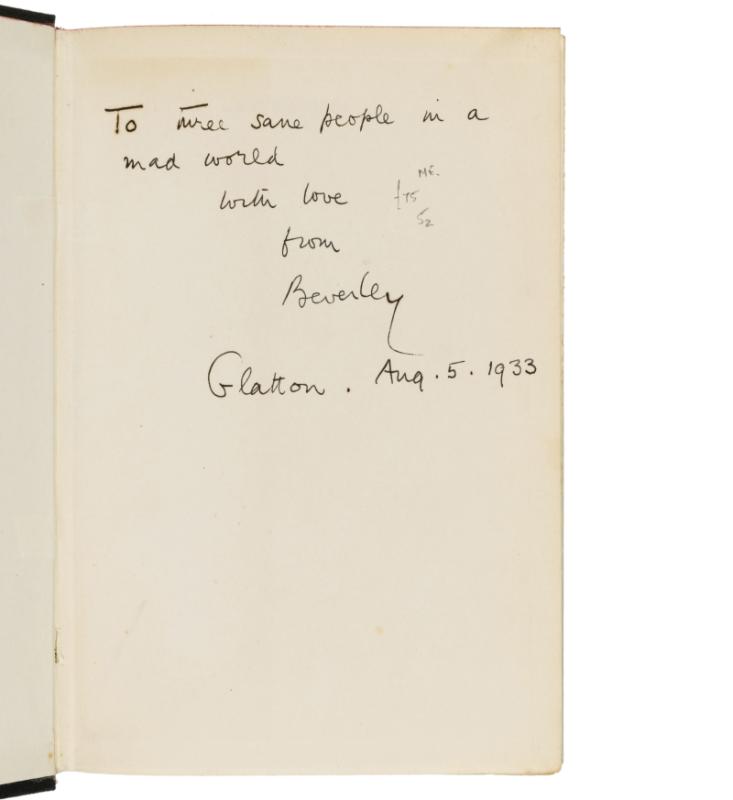 To three sane people in a
mad world
with love
from
Beverley
Glatton. Aug. 5. 1933
ME.
£75
52